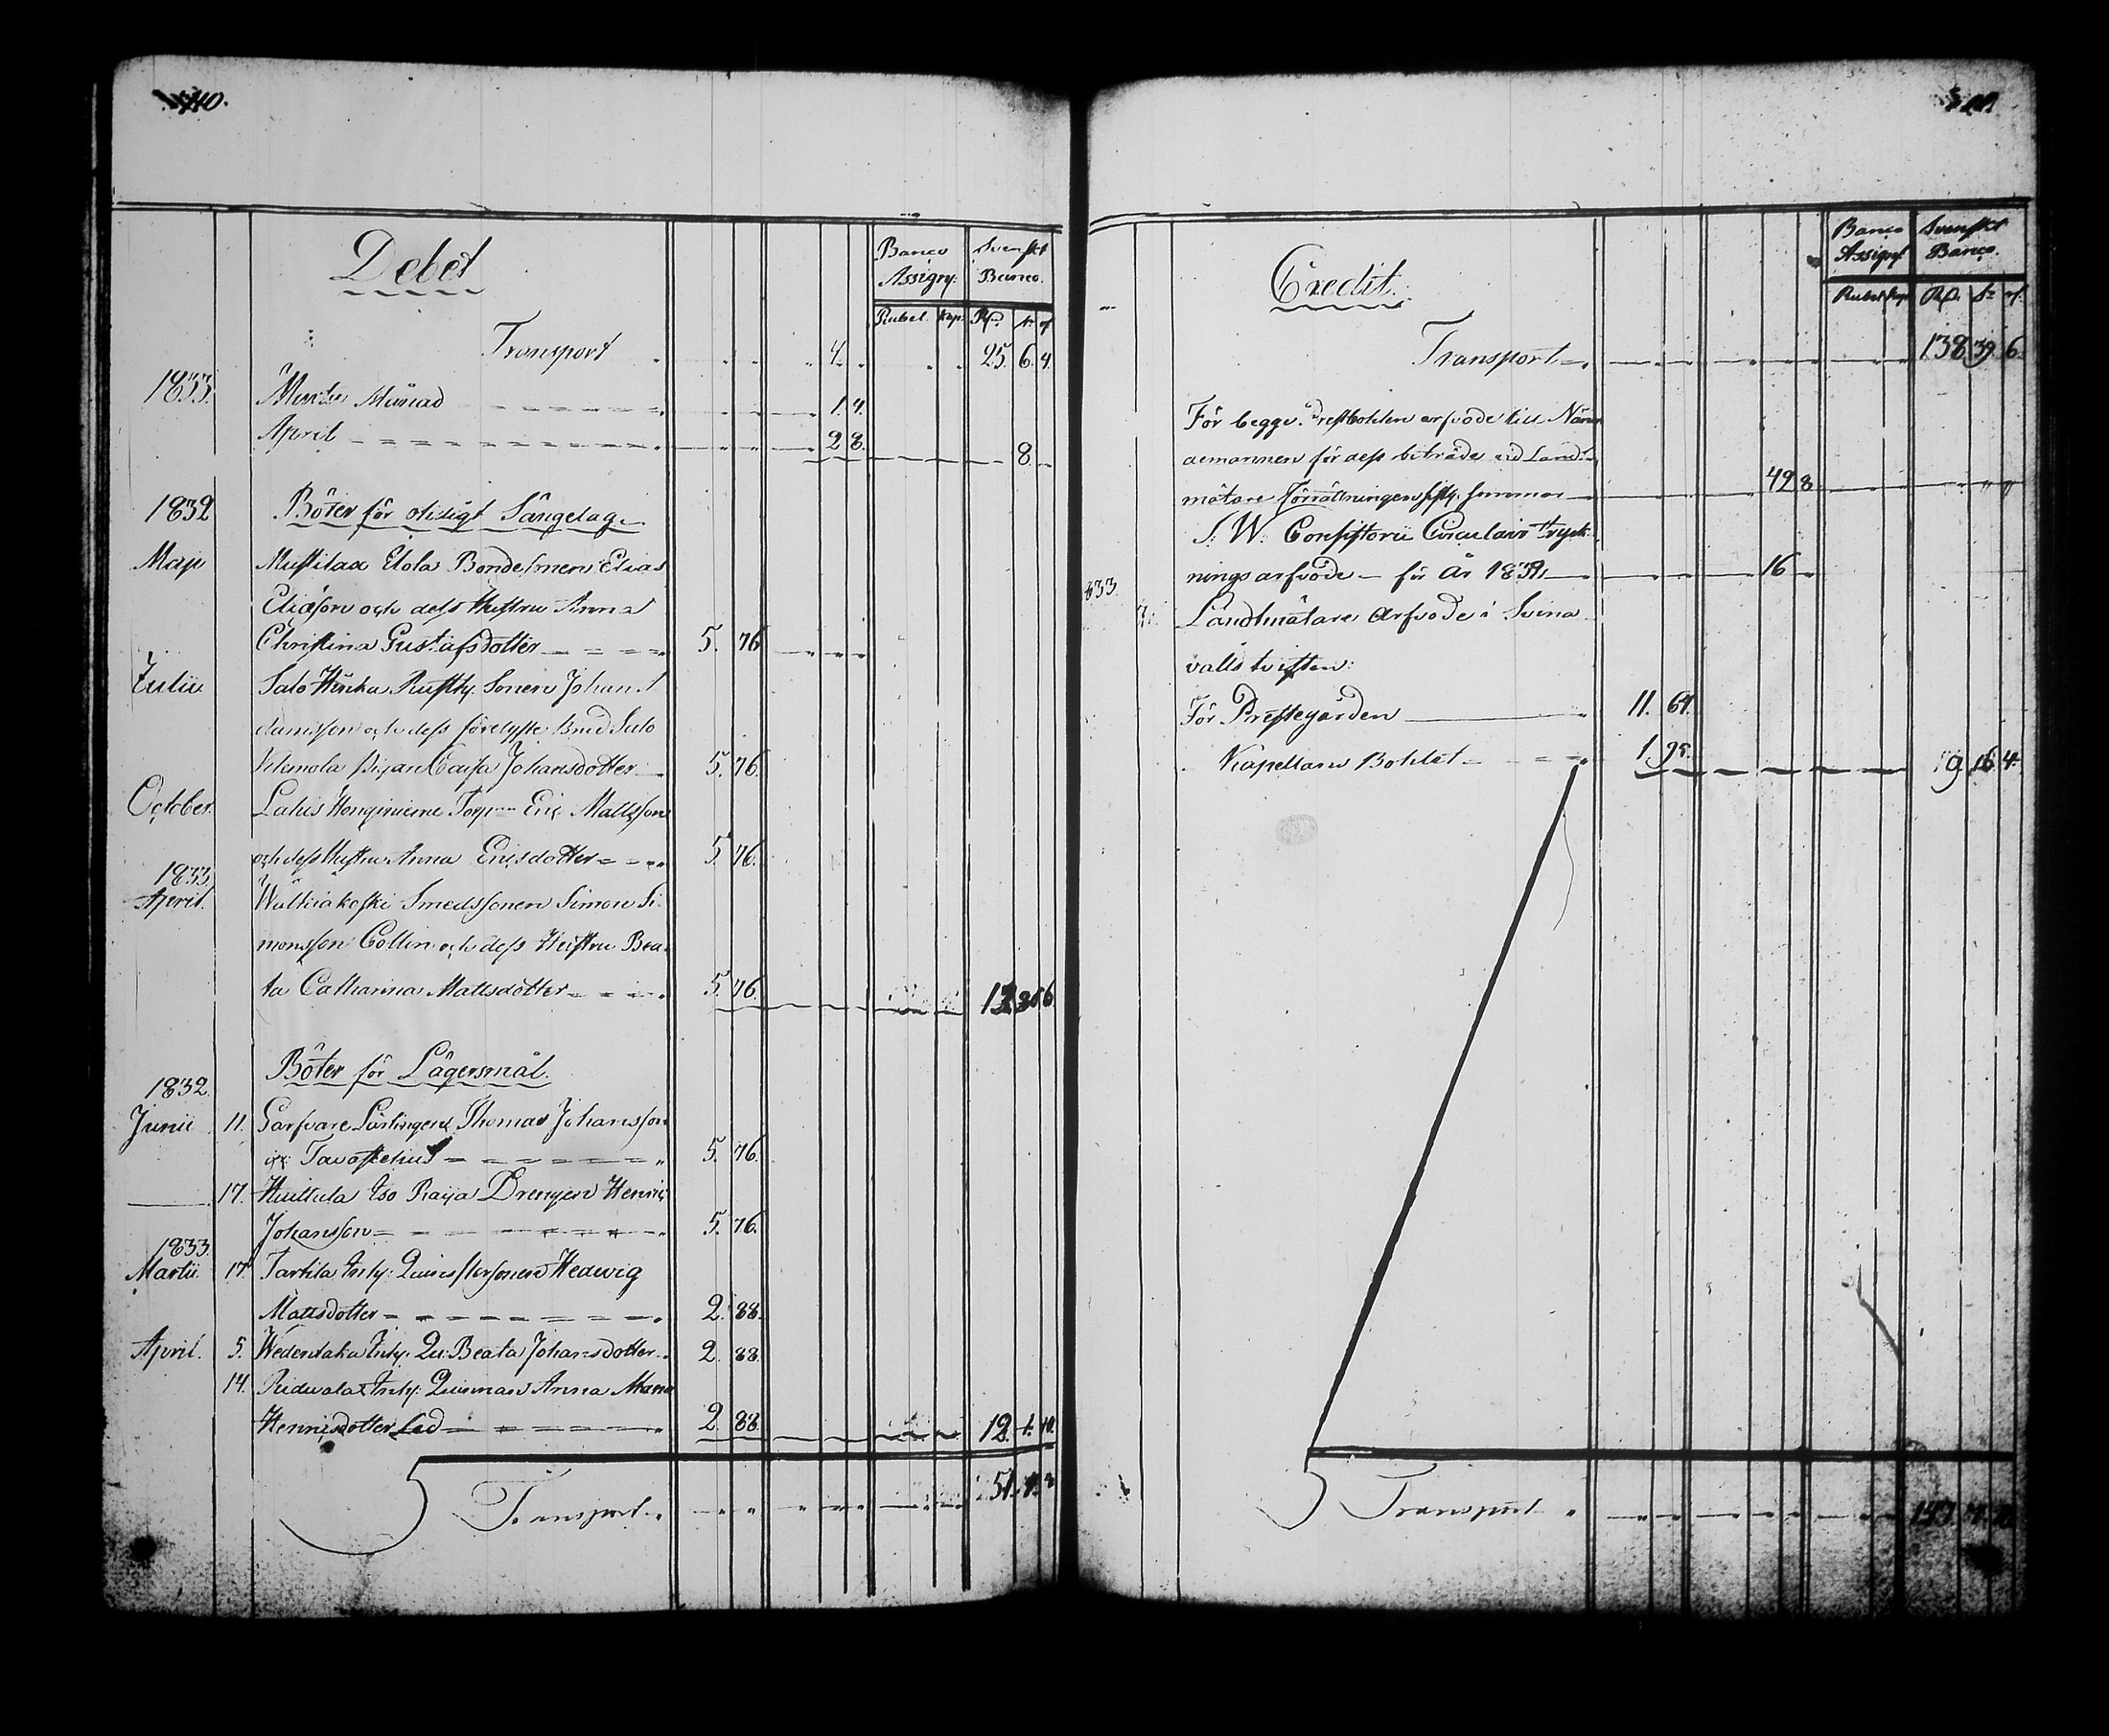 110.
Debet
Banco Assign: Svenskt Banco.
Rubel. Kop: Rd. s. rf
Transport 4. 25. 6. 4.
1833. Martii Månad 1. 4.
April 2 8. 8.
1832 Böter för otidigt Sängelag.
Maji Mustilax Elola Bondesmen Elias
Eliasson och dess Hustru Anna
Christina Gustafsdotter 5. 76
Julii Salo Heikka Rusth. Sonen Johan
damsson och dess förelyste Brud Salo
pigan Caisa Johansdotter 5. 76.
October. Lahis Torp Eric Mattsson
och dess Hustru Anna Ericsdotter 5. 76.
1833.
April. Walkiakoski Smedssonen Simon Si
monsson Collin och dess Hustru Bea
ta Catharina Mattsdotter 5. 76. 6
Böter för Lägersmål.
1832.
Junii 11. Garfvare Lärlingen Thomas Johansson
Tavastehus 5. 76.
17. Huittula Iso Raija Drengen Henric
Johansson 5. 76.
1833.
Martii 17. Tarttila Inh: Hedwig
Mattsdotter 2. 88.
April. 5. Wedentaka Inh. Qu: Beata Johansdotter 2. 88.
14. Inh: Quinnan Anna Maria
Henricsdotter 2. 88. 12.
Transport 51.
Credit.
Banco Assign: Svenskt Banco.
Rubel Kop Rd. s. rf.
Transport 138 39. 6.
För begge Prestbohlen arfvode till Nämn
demannen för dess biträde vid Landt
mätare Förrättningen sommar 42 8
S: W: Consistorii Circulairs tryck
nings arfvode för år 1832 16
833. Landtmätare Arfvode i Svina
valls tvisten:
För Prestegården 11. 64.
Kapellans Bohlet 1. 95. 16 4.
Transport